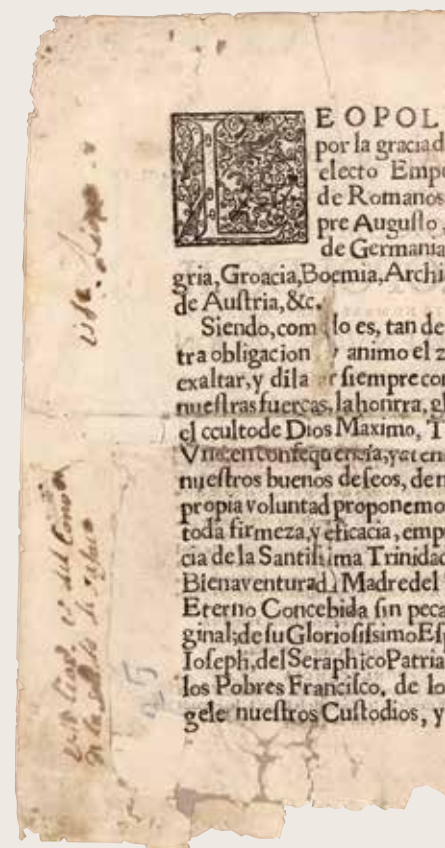 LEOPOL
por la gracia d
electo Empe
de Romanos
pre Auguſto,
de Germania
gria, Groacia, Boemia, Archi
de Auſtria, &c.
Siendo, com lo es, tan de
tra obligacion y animo el z
exaltar, y dila r ſiempre con
nueſtras fuerças, la honrra, gl
el ccultode Dios Maximo, T
nueſtros buenos deſeos, de n
propia voluntad proponemo
toda firmeza, y eficacia, emp
cia de la Santiſsima Trinidad
Bienaventurad Madre del
Eterno Concebida ſin peca
ginal; de ſu Glorioſiſsimo Eſp
Ioſeph, del Seraphico Patria
los Pobres Franciſco, de lo
gele nueſtros Cuſtodios, y
25